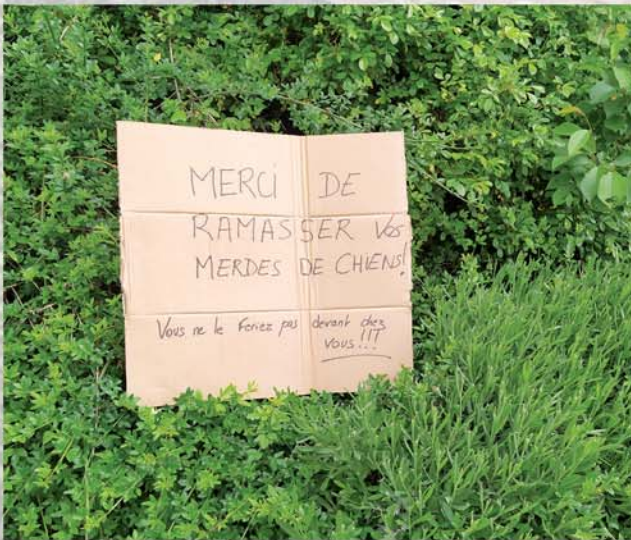 MERCI DE
RAMASSER VOS
MERDES DE CHIENS!
Vous ne le Feriez pas devant chez
VOUS!!!